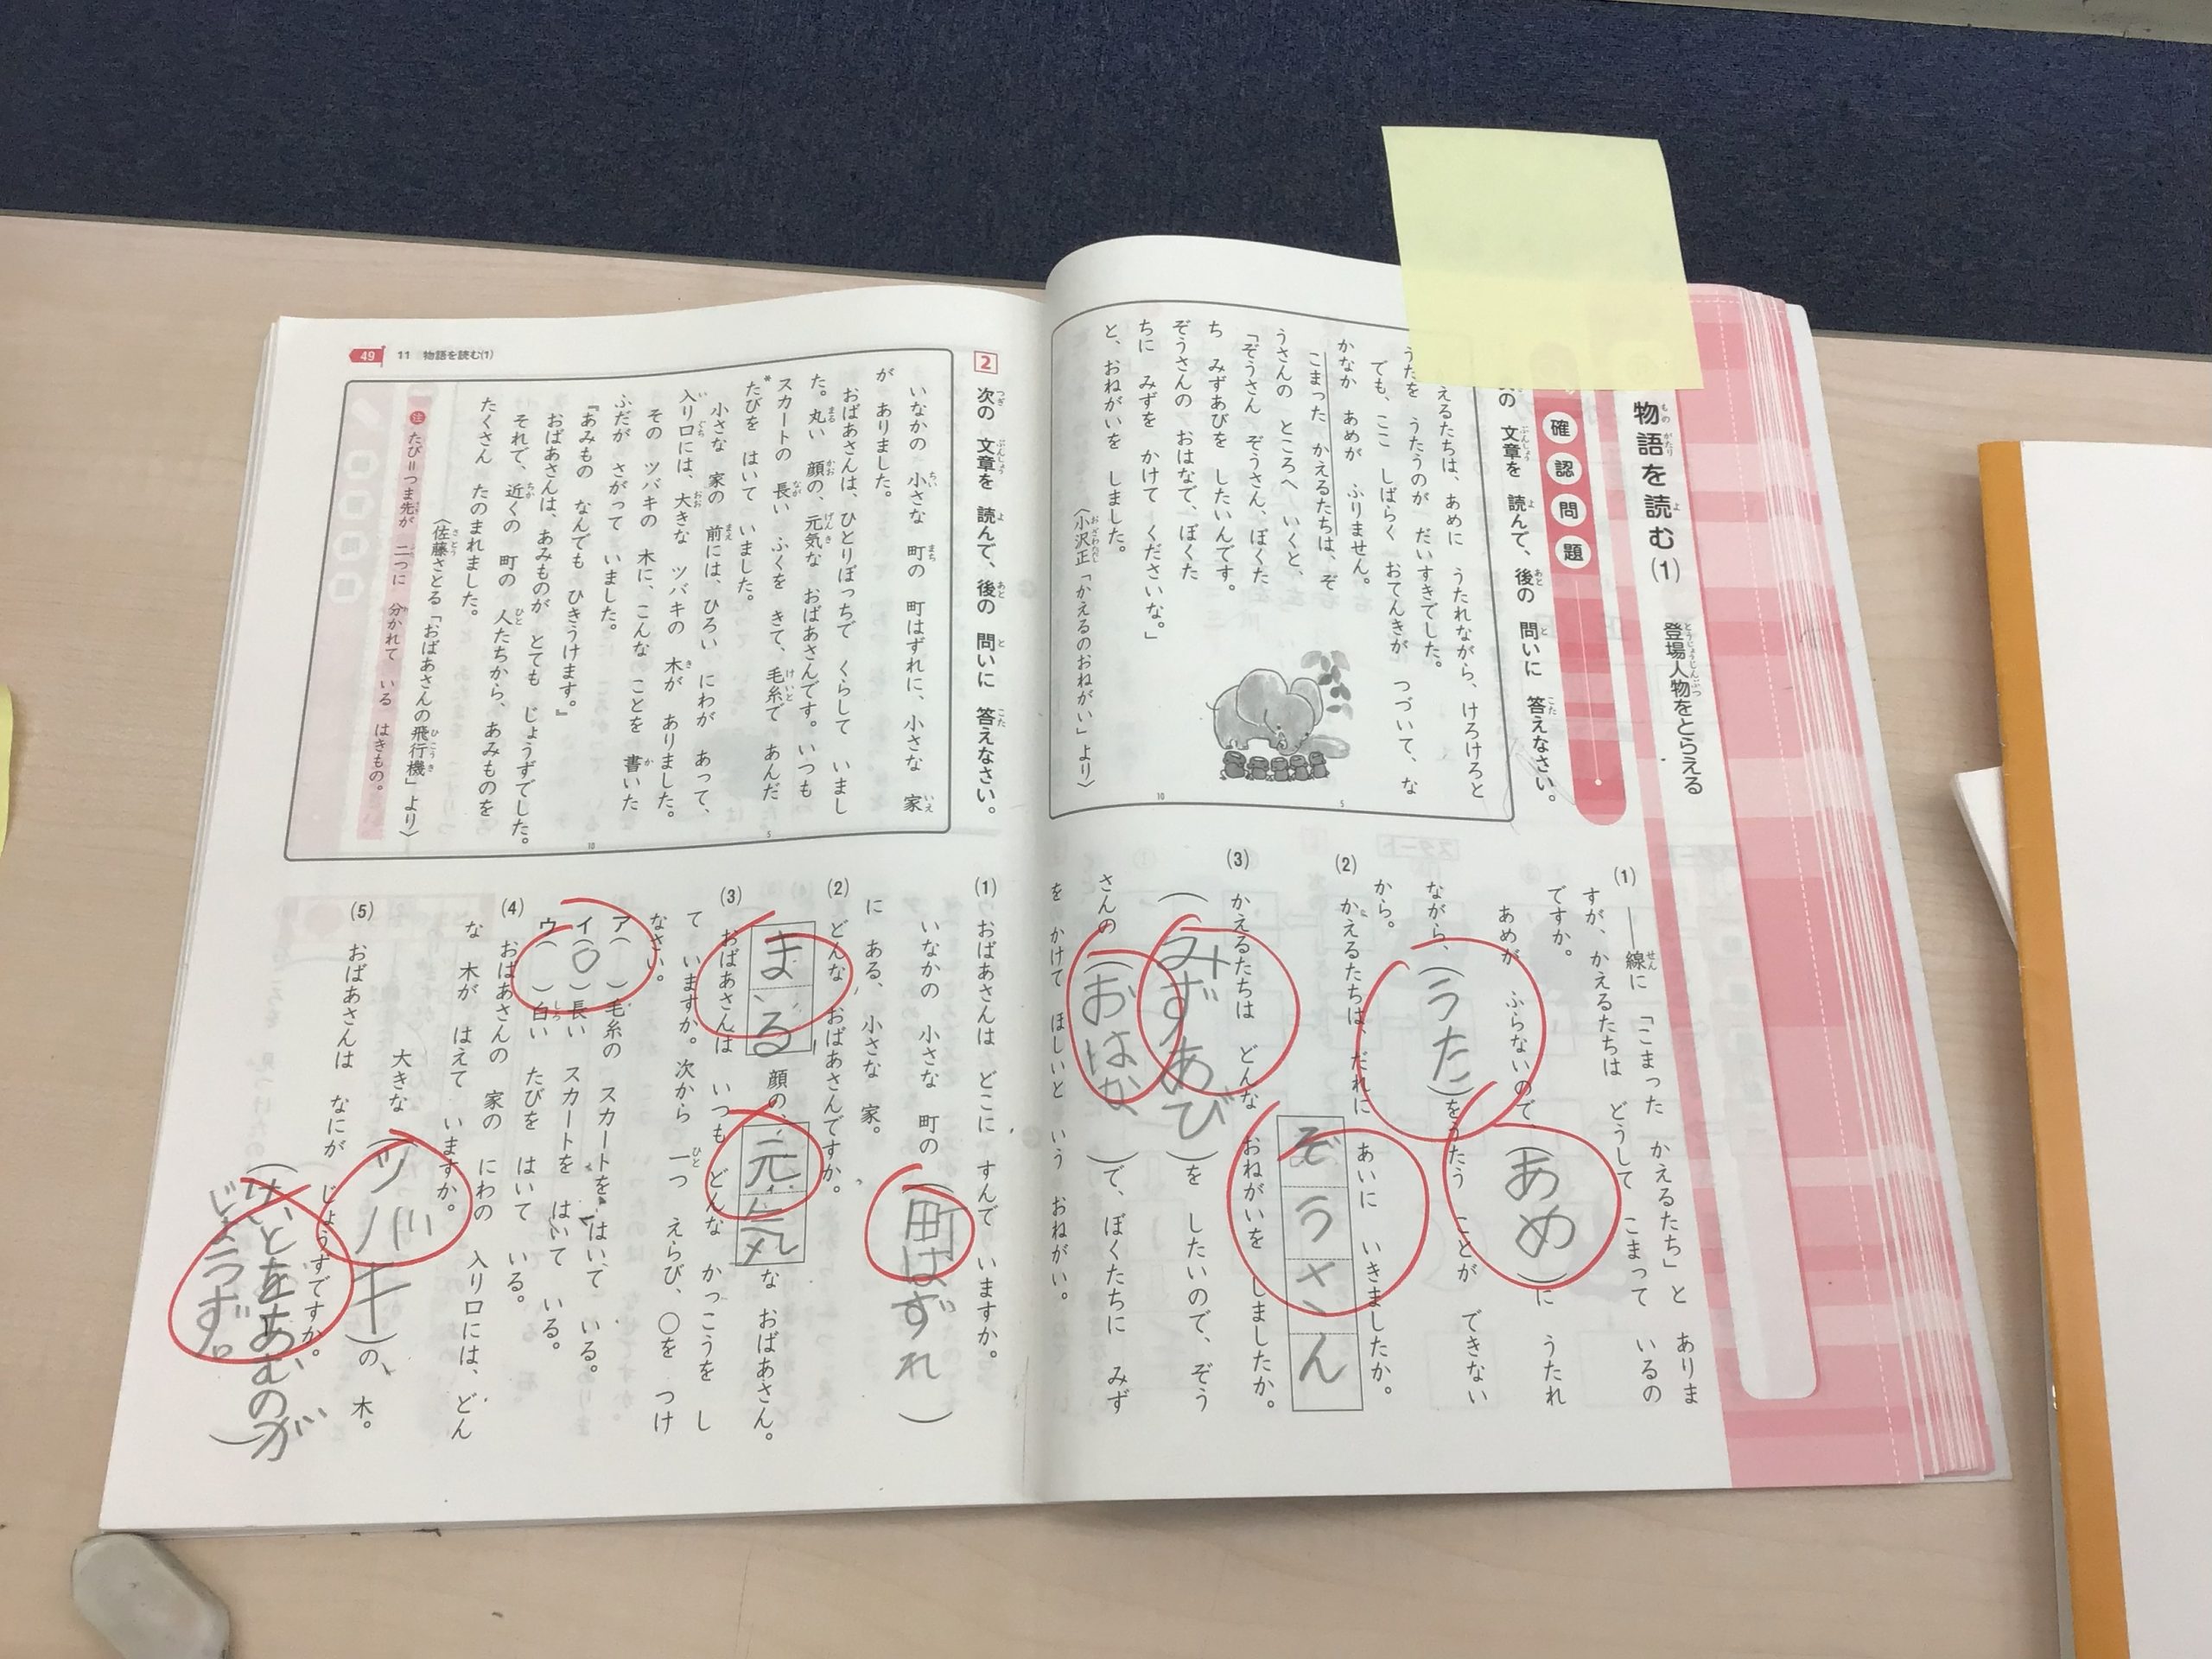 物語を読む(1)
登場人物をとらえる
確認問題
の 文章を 読んで、後の 問いに 答えなさい。
えるたちは、あめに うたれながら、けろけろと
うたを うたうのが だいすきでした。
でも、ここ しばらく おてんきが つづいて、な
かなか あめが ふりません。
こまった かえるたちは、ぞ
うさんの ところへ いくと、
「ぞうさん ぞうさん、ぼくた
ち みずあびを したいんです。
ぞうさんの おはなで、ぼくた
ちに みずを かけて くださいな。」
と、おねがいを しました。
〈小沢正「かえるのおねがい」より〉
5
10
(1) ──線に 「こまった かえるたち」と ありま
すが、かえるたちは どうして こまって いるの
ですか。
あめが ふらないので、(あめ)に うたれ
ながら、(うた)を うたう ことが できない
から。
(2) かえるたちは、だれに あいに いきましたか。
ぞうさん
(3) かえるたちは どんな おねがいを しましたか。
(みずあび)を したいので、ぞう
さんの (おはな)で、ぼくたちに みず
を かけて ほしいと いう おねがい。
2 次の 文章を 読んで、後の 問いに 答えなさい。
いなかの 小さな 町の 町はずれに、小さな 家
が ありました。
おばあさんは、ひとりぼっちで くらして いまし
た。丸い 顔の、元気な おばあさんです。いつも
スカートの 長い ふくを きて、毛糸で あんだ
*たびを はいて いました。
小さな 家の 前には、ひろい にわが あって、
入り口には、大きな ツバキの 木が ありました。
その ツバキの 木に、こんな ことを 書いた
ふだが さがって いました。
『あみもの なんでも ひきうけます。』
おばあさんは、あみものが とても じょうずでした。
それで、近くの 町の 人たちから、あみものを
たくさん たのまれました。
〈佐藤さとる「おばあさんの飛行機」より〉
注 たび=つま先が 二つに 分かれて いる はきもの。
5
10
(1) おばあさんは どこに すんで いますか。
いなかの 小さな 町の (町はずれ)
に ある、小さな 家。
(2) どんな おばあさんですか。
まる 顔の、元気な おばあさん。
(3) おばあさんは いつも どんな かっこうを し
て いますか。次から 一つ えらび、○を つけ
なさい。
ア( )毛糸の スカートを はいて いる。
イ(○)長い スカートを はいて いる。
ウ( )白い たびを はいて いる。
(4) おばあさんの 家の にわの 入り口には、どん
な 木が はえて いますか。
大きな (ツバキ)の 木。
(5) おばあさんは なにが じょうずですか。
(けいとをあむのが
じょうず。)
49 11 物語を読む(1)